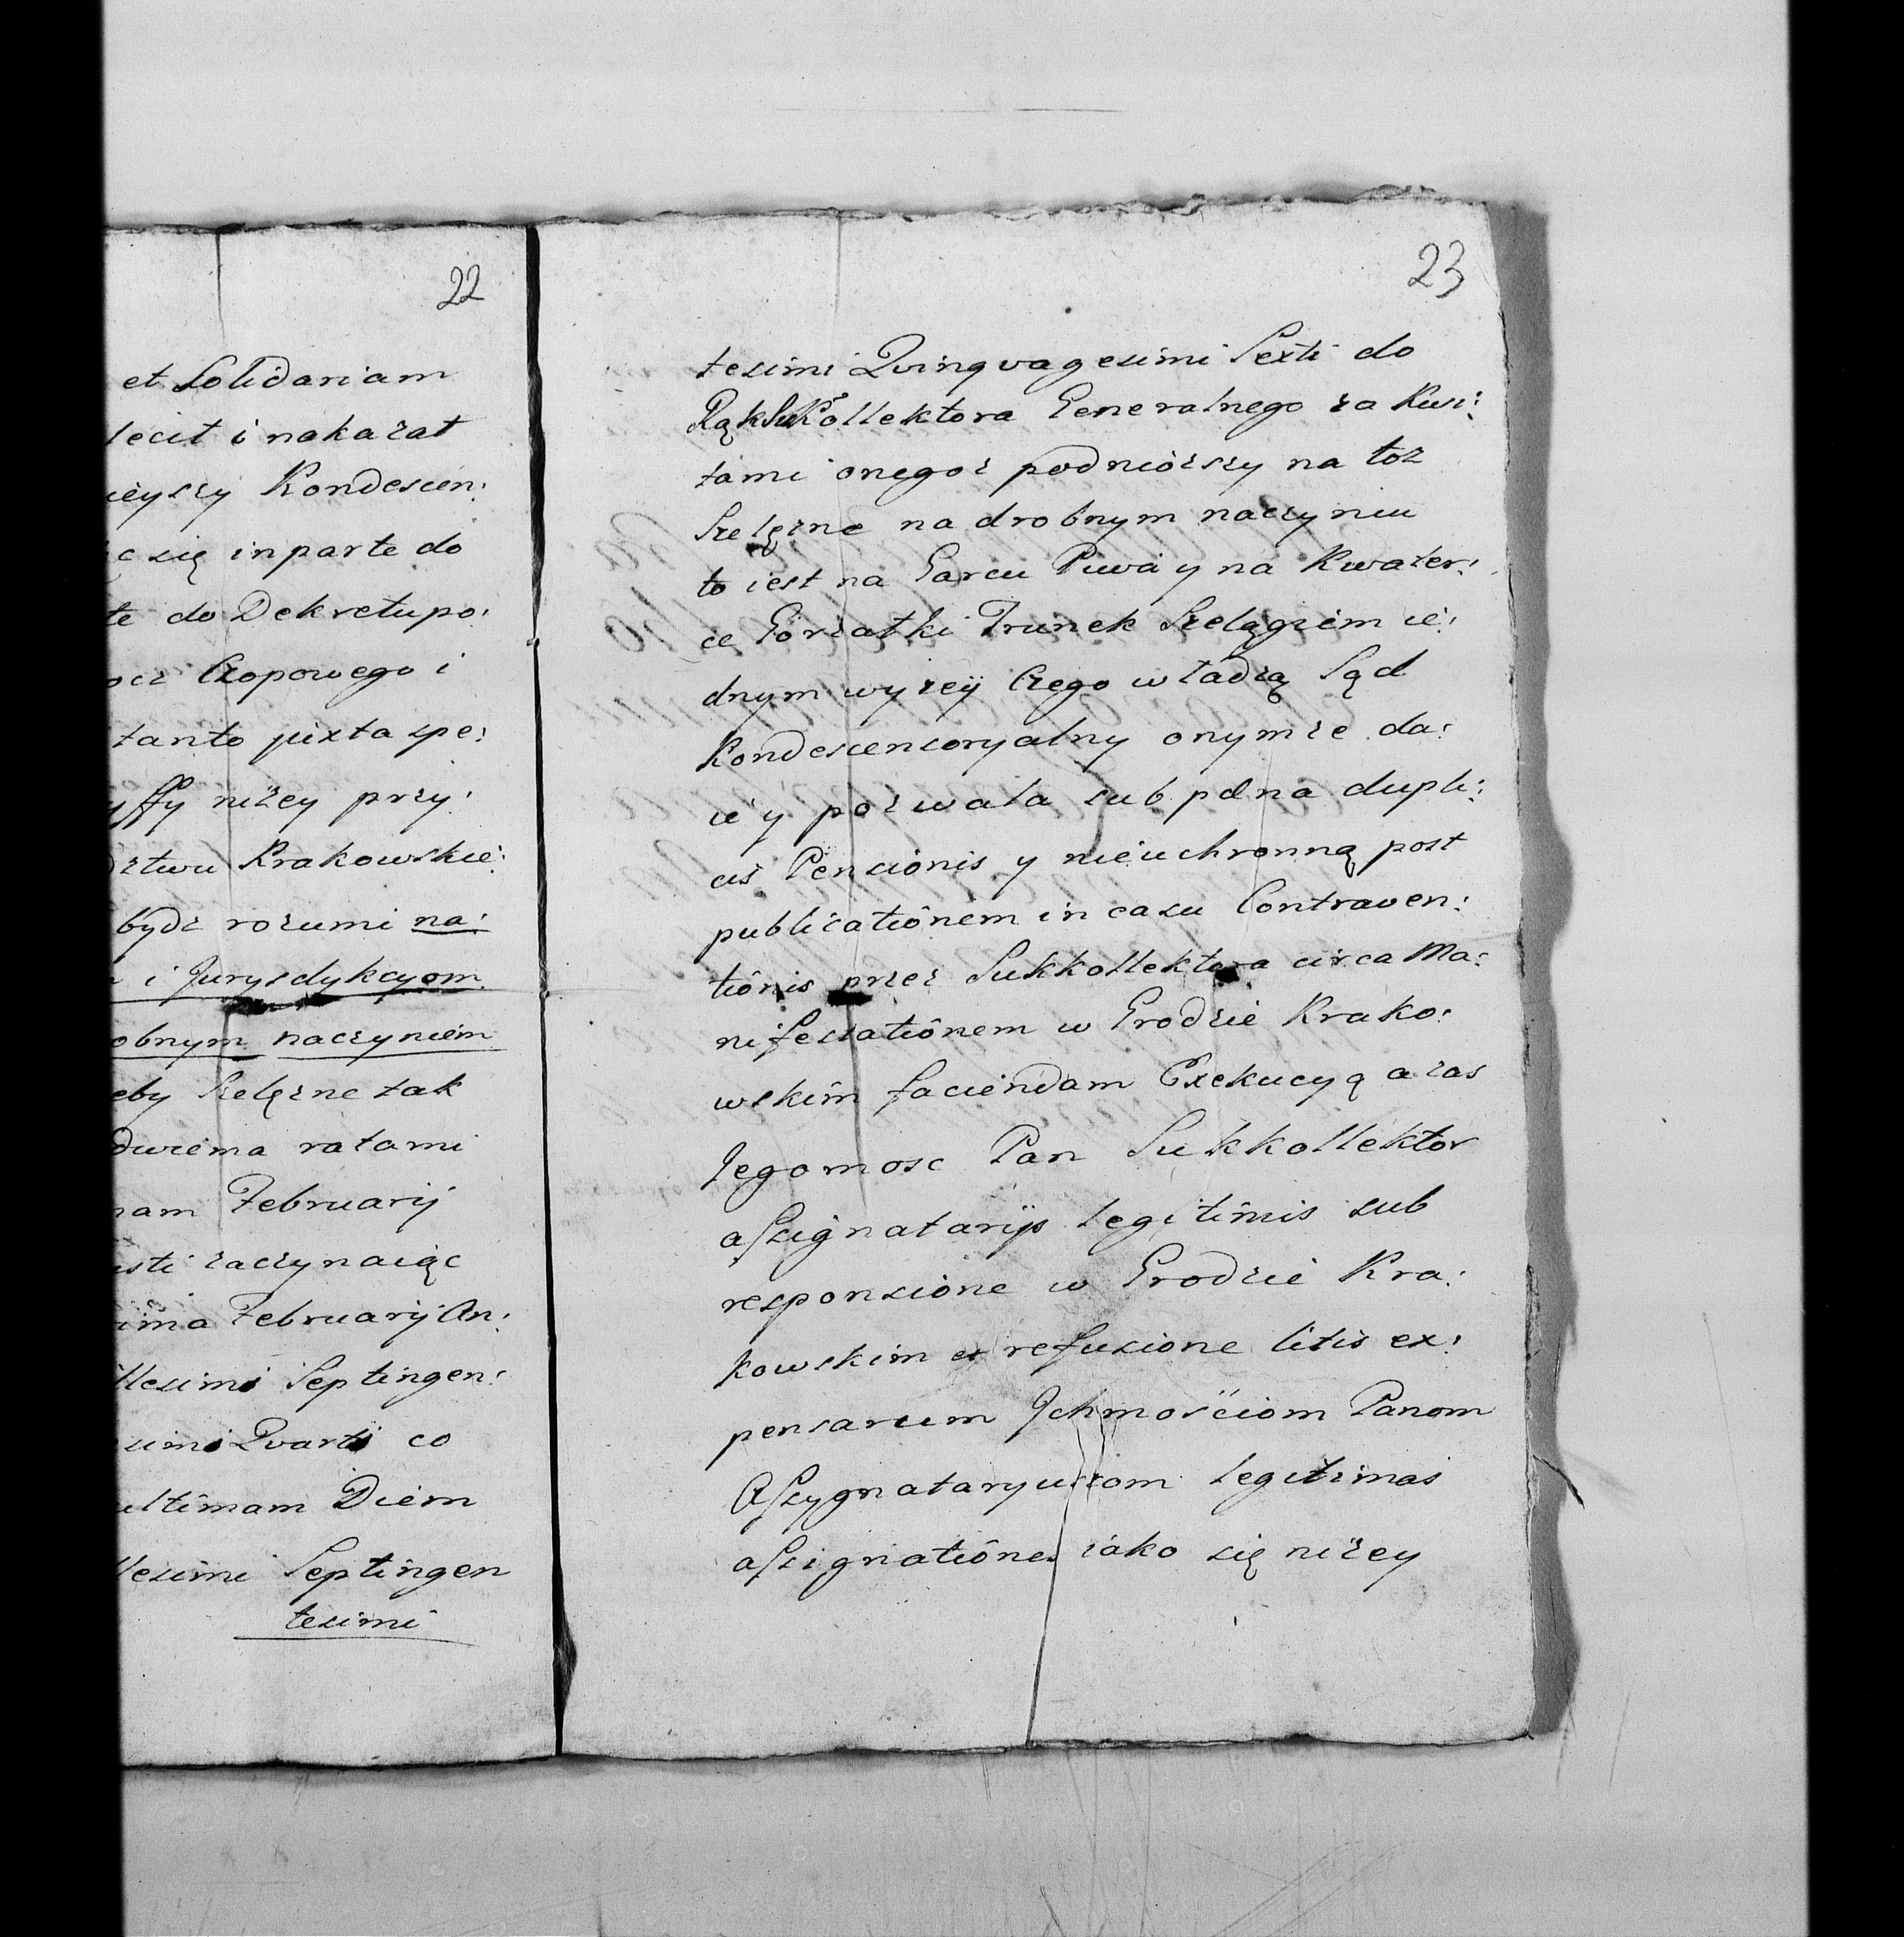 22
et Solidariam
lecit i nakazał
ieyszy Kondescen:
ąc się in parte do
te do Dekretu po:
ocz Czopowego i
tanto juxta spe:
yffy niżey przy:
dztwu Krakowskie:
bydz rozumi na:
i Jurysdykcyom
obnym naczyniem
eby Szelężne tak
dwiema ratami
nam Februarij
usti zaczynaiąc
ima Februarij An:
llesimi Septingen:
simi Qvarti co
ultimam Diem
llesimi Septingen
tesimi
23
tesimi Qvinqvagesimi Sexti do
Rąk SuKKollektora Generalnego za Kwi:
tami onegoż podniozszy na toż
Szelężne na drobnym naczyniu
to iest na Garcu Piwa y na Kwater:
ce Górzałki Trunek Szelągiem ie:
dnym wyżey Czego władzą Sąd
Kondescensoryalny onymże da:
ie y pozwala sub poena dupli:
cis Pensionis y nieuchronną post
publicationem in casu Contraven:
tionis przez Sukkollektora circa Ma:
nifestationem w Grodzie Krako:
wskim faciendam Exekucyą a zas
Jegomosc Pan Sukkollektor
assignatarijs legitimis sub
responsione w Grodzie Kra:
kowskim et refusione litis ex:
pensarum Jchmośćiom Panom
Assygnataryuszom legitimas
assignationes iako się niżey